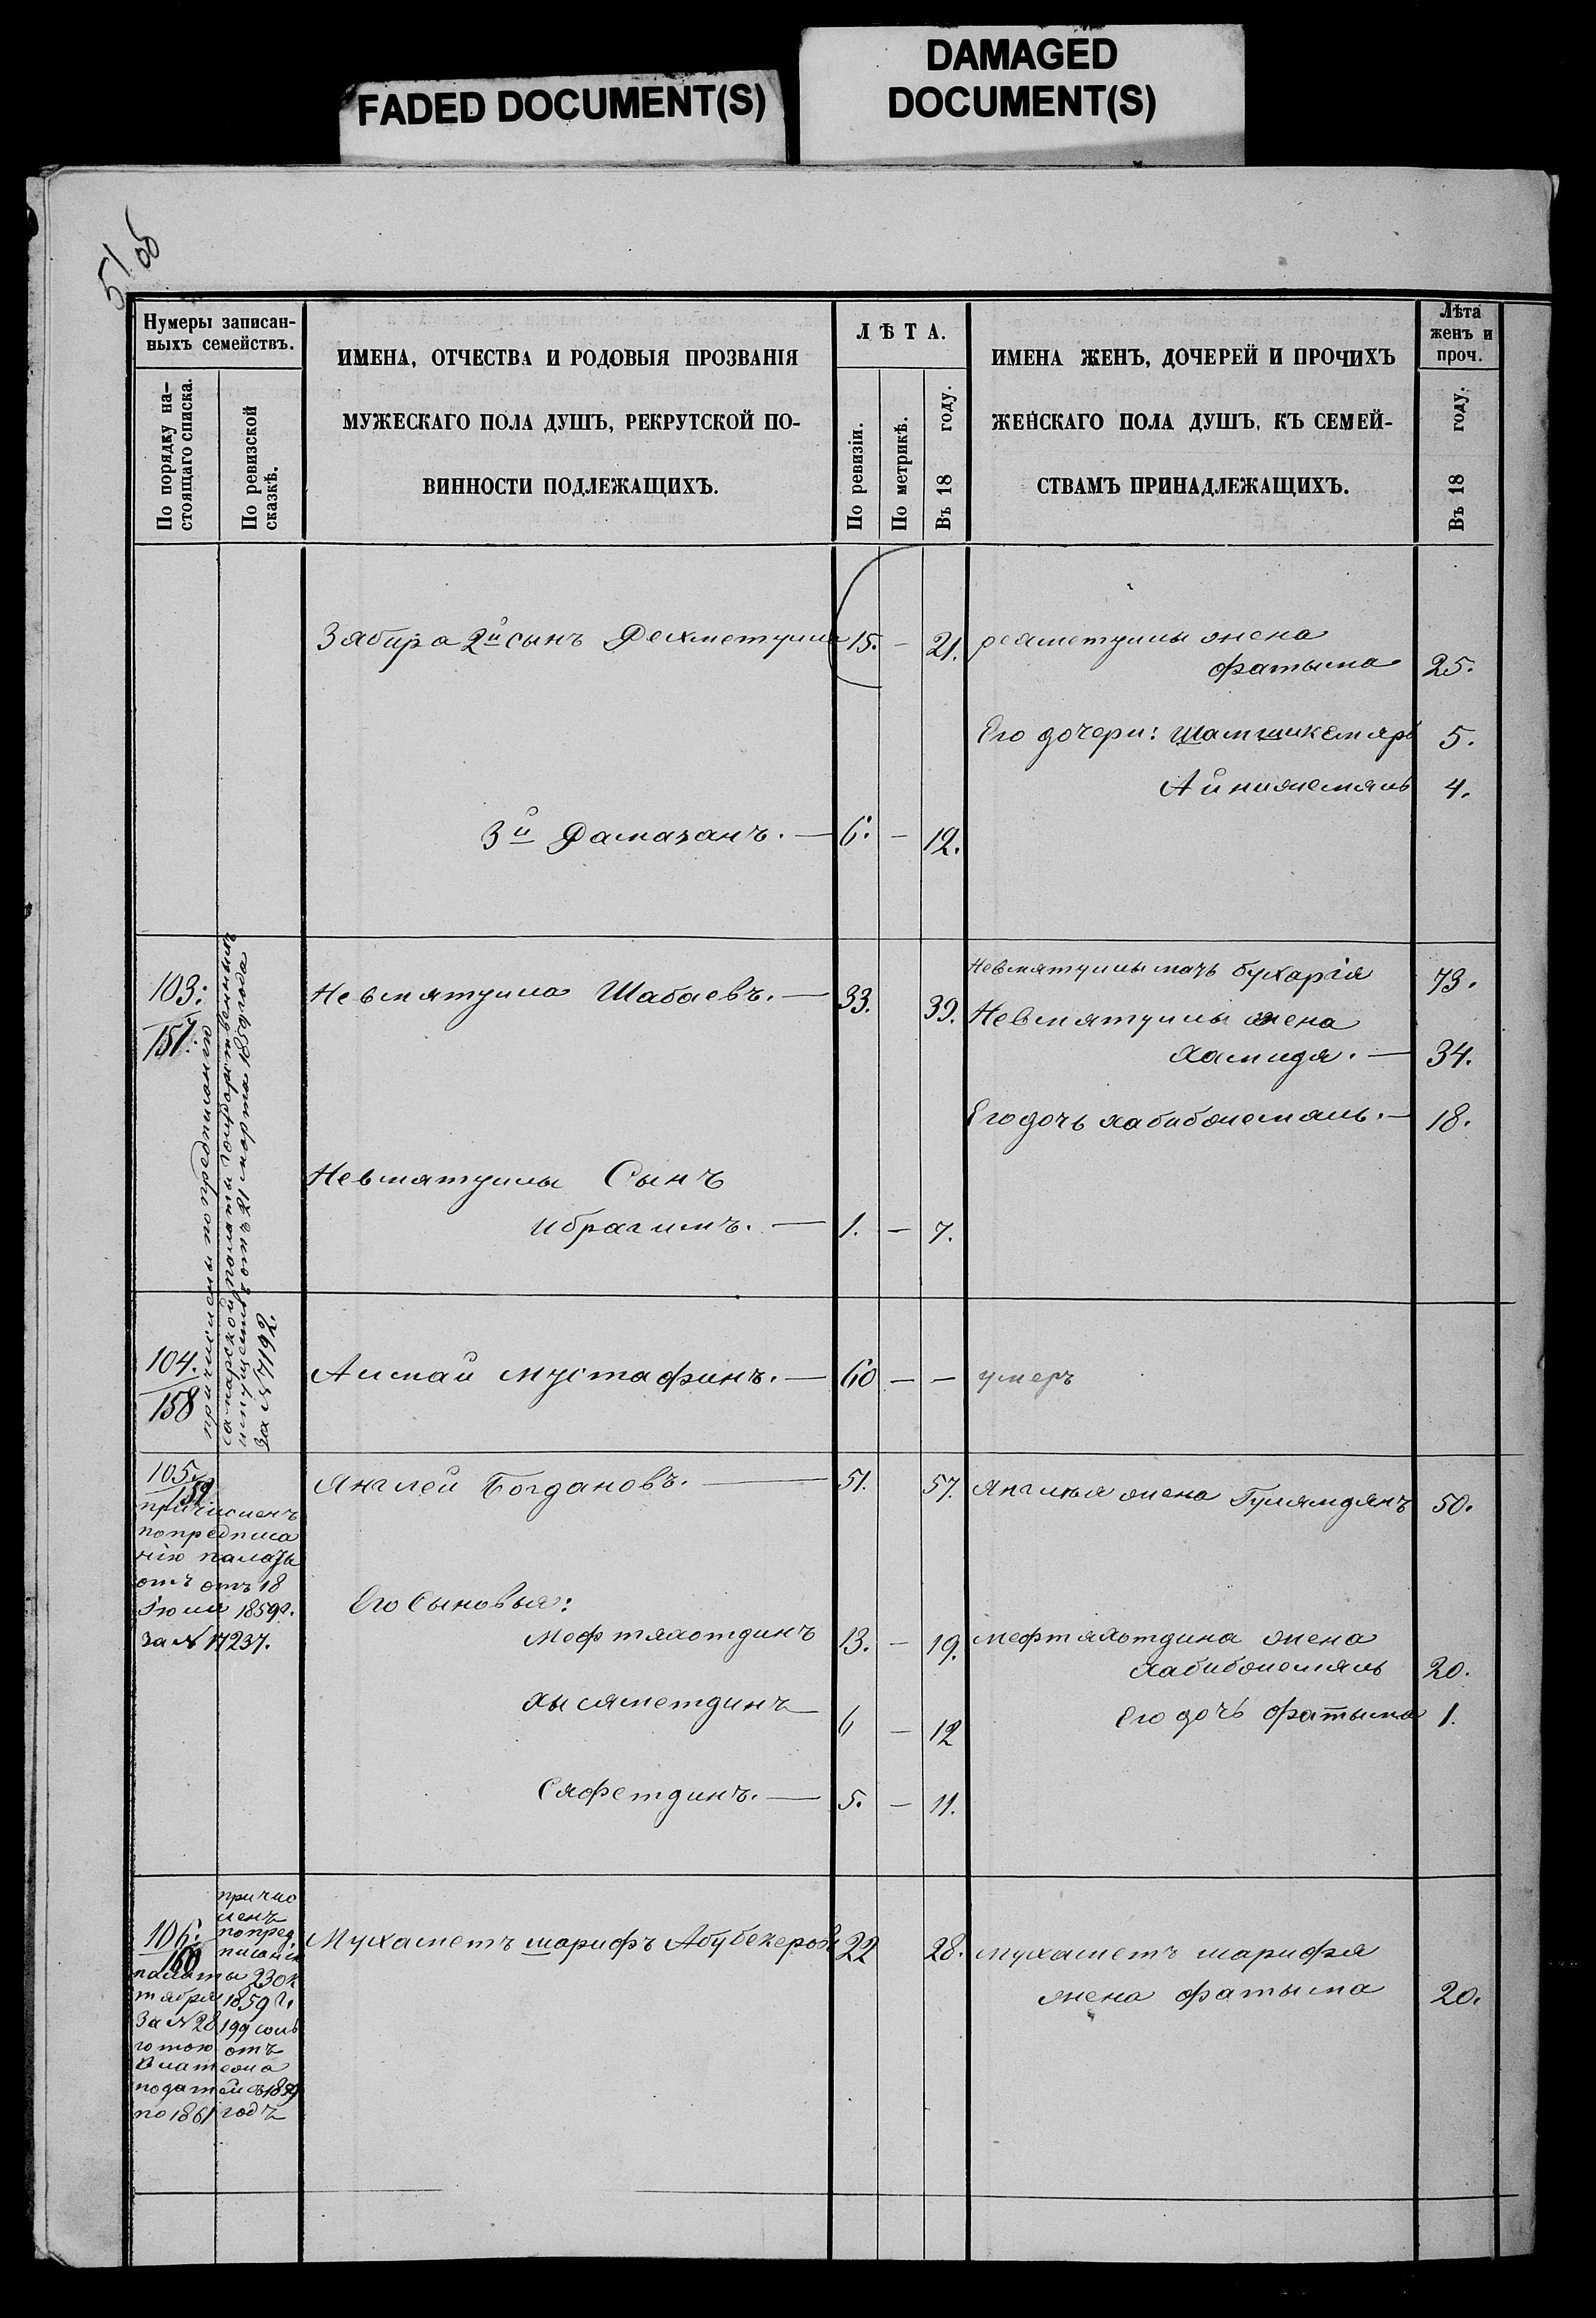 FADED DOCUMENT(S)
DAMAGED
DOCUMENT(S)
51 об
Нумеры записан-
ныхъ семействъ.
По порядку на-
стоящаго списка.
По ревизской
сказкѣ.
ИМЕНА, ОТЧЕСТВА И РОДОВЫЯ ПРОЗВАНІЯ
МУЖЕСКАГО ПОЛА ДУШЪ, РЕКРУТСКОЙ ПО-
ВИННОСТИ ПОДЛЕЖАЩИХЪ.
ЛѢТА.
По ревизіи.
По метрикѣ.
Въ 18 году.
ИМЕНА ЖЕНЪ, ДОЧЕРЕЙ И ПРОЧИХЪ
ЖЕНСКАГО ПОЛА ДУШЪ, КЪ СЕМЕЙ-
СТВАМЪ ПРИНАДЛЕЖАЩИХЪ.
Лѣта
женъ и
проч.
Въ 18 году.
Зябира 2й сынъ Рехметулла 15. — 21. рехметуллы жена
фатыма 25.
Его дочери: Шамшикемяръ 5.
Айнижемяль 4.
3й Рамазанъ. — 6. — 12.
103.
157.
причислены по предписанію
самарской палаты государственныхъ
имуществъ отъ 21 марта 1859 года
за № 7192.
Невмятулла Шабаевъ. — 33. 39.
Невмятуллы мать бухарія 73.
Невмятуллы жена
хамидя. — 34.
Его дочь хабибжемяль. — 18.
Невмятуллы Сынъ
ибрагимъ. — 1. — 7.
104.
158
Алмай мустафинъ. — 60 — — умеръ
105.
159.
причисленъ
по предписа
нію палаты
отъ отъ 18
Іюля 1859 г.
за № 17237.
Янглей Богдановъ. — 51. 57. Янглея жена Гулямдянъ 50.
Его Сыновья:
Мефтяхотдинъ 13. — 19. мефтяхотдина жена
хабибжемяль 20.
хысяметдинъ 6 — 12 Его дочь фатыма 1.
Сяфетдинъ. — 5. — 11.
106.
160
причис
ленъ
по пред
писанію
палаты 23 ок
тября 1859 г.
За № 28199 соль
готою отъ
платежа
податей съ 1859
по 1861 годъ
Мухаметъ шарифъ Абубекеровъ 22 28. мухаметъ шарифа
жена фатыма 20.